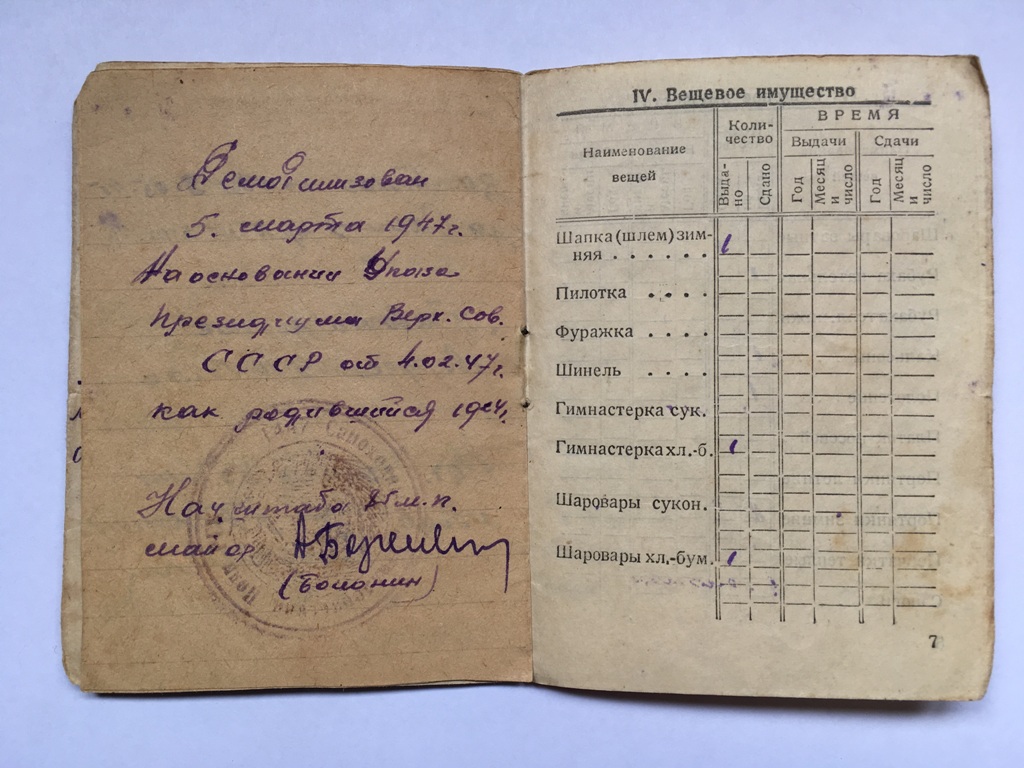 Демобилизован
5. марта 1947г.
На основании Указа
Президиума Верх. Сов.
СССР от 4.02.47г.
как родившийся 1924.
Нач штаба м.п.
майор
IV. Вещевое имущество
Наименование вещей
Коли-
чество
ВРЕМЯ
Выдачи
Сдачи
Выда-
но
Сдано
Год
Месяц
и
число
Год
Месяц
и
число
Шапка (шлем) зим-
няя . . . . . . 1
Пилотка . . . .
Фуражка . . . .
Шинель . . . .
Гимнастерка сук.
Гимнастерка хл.-б. 1
Шаровары сукон.
Шаровары хл.-бум. 1
7